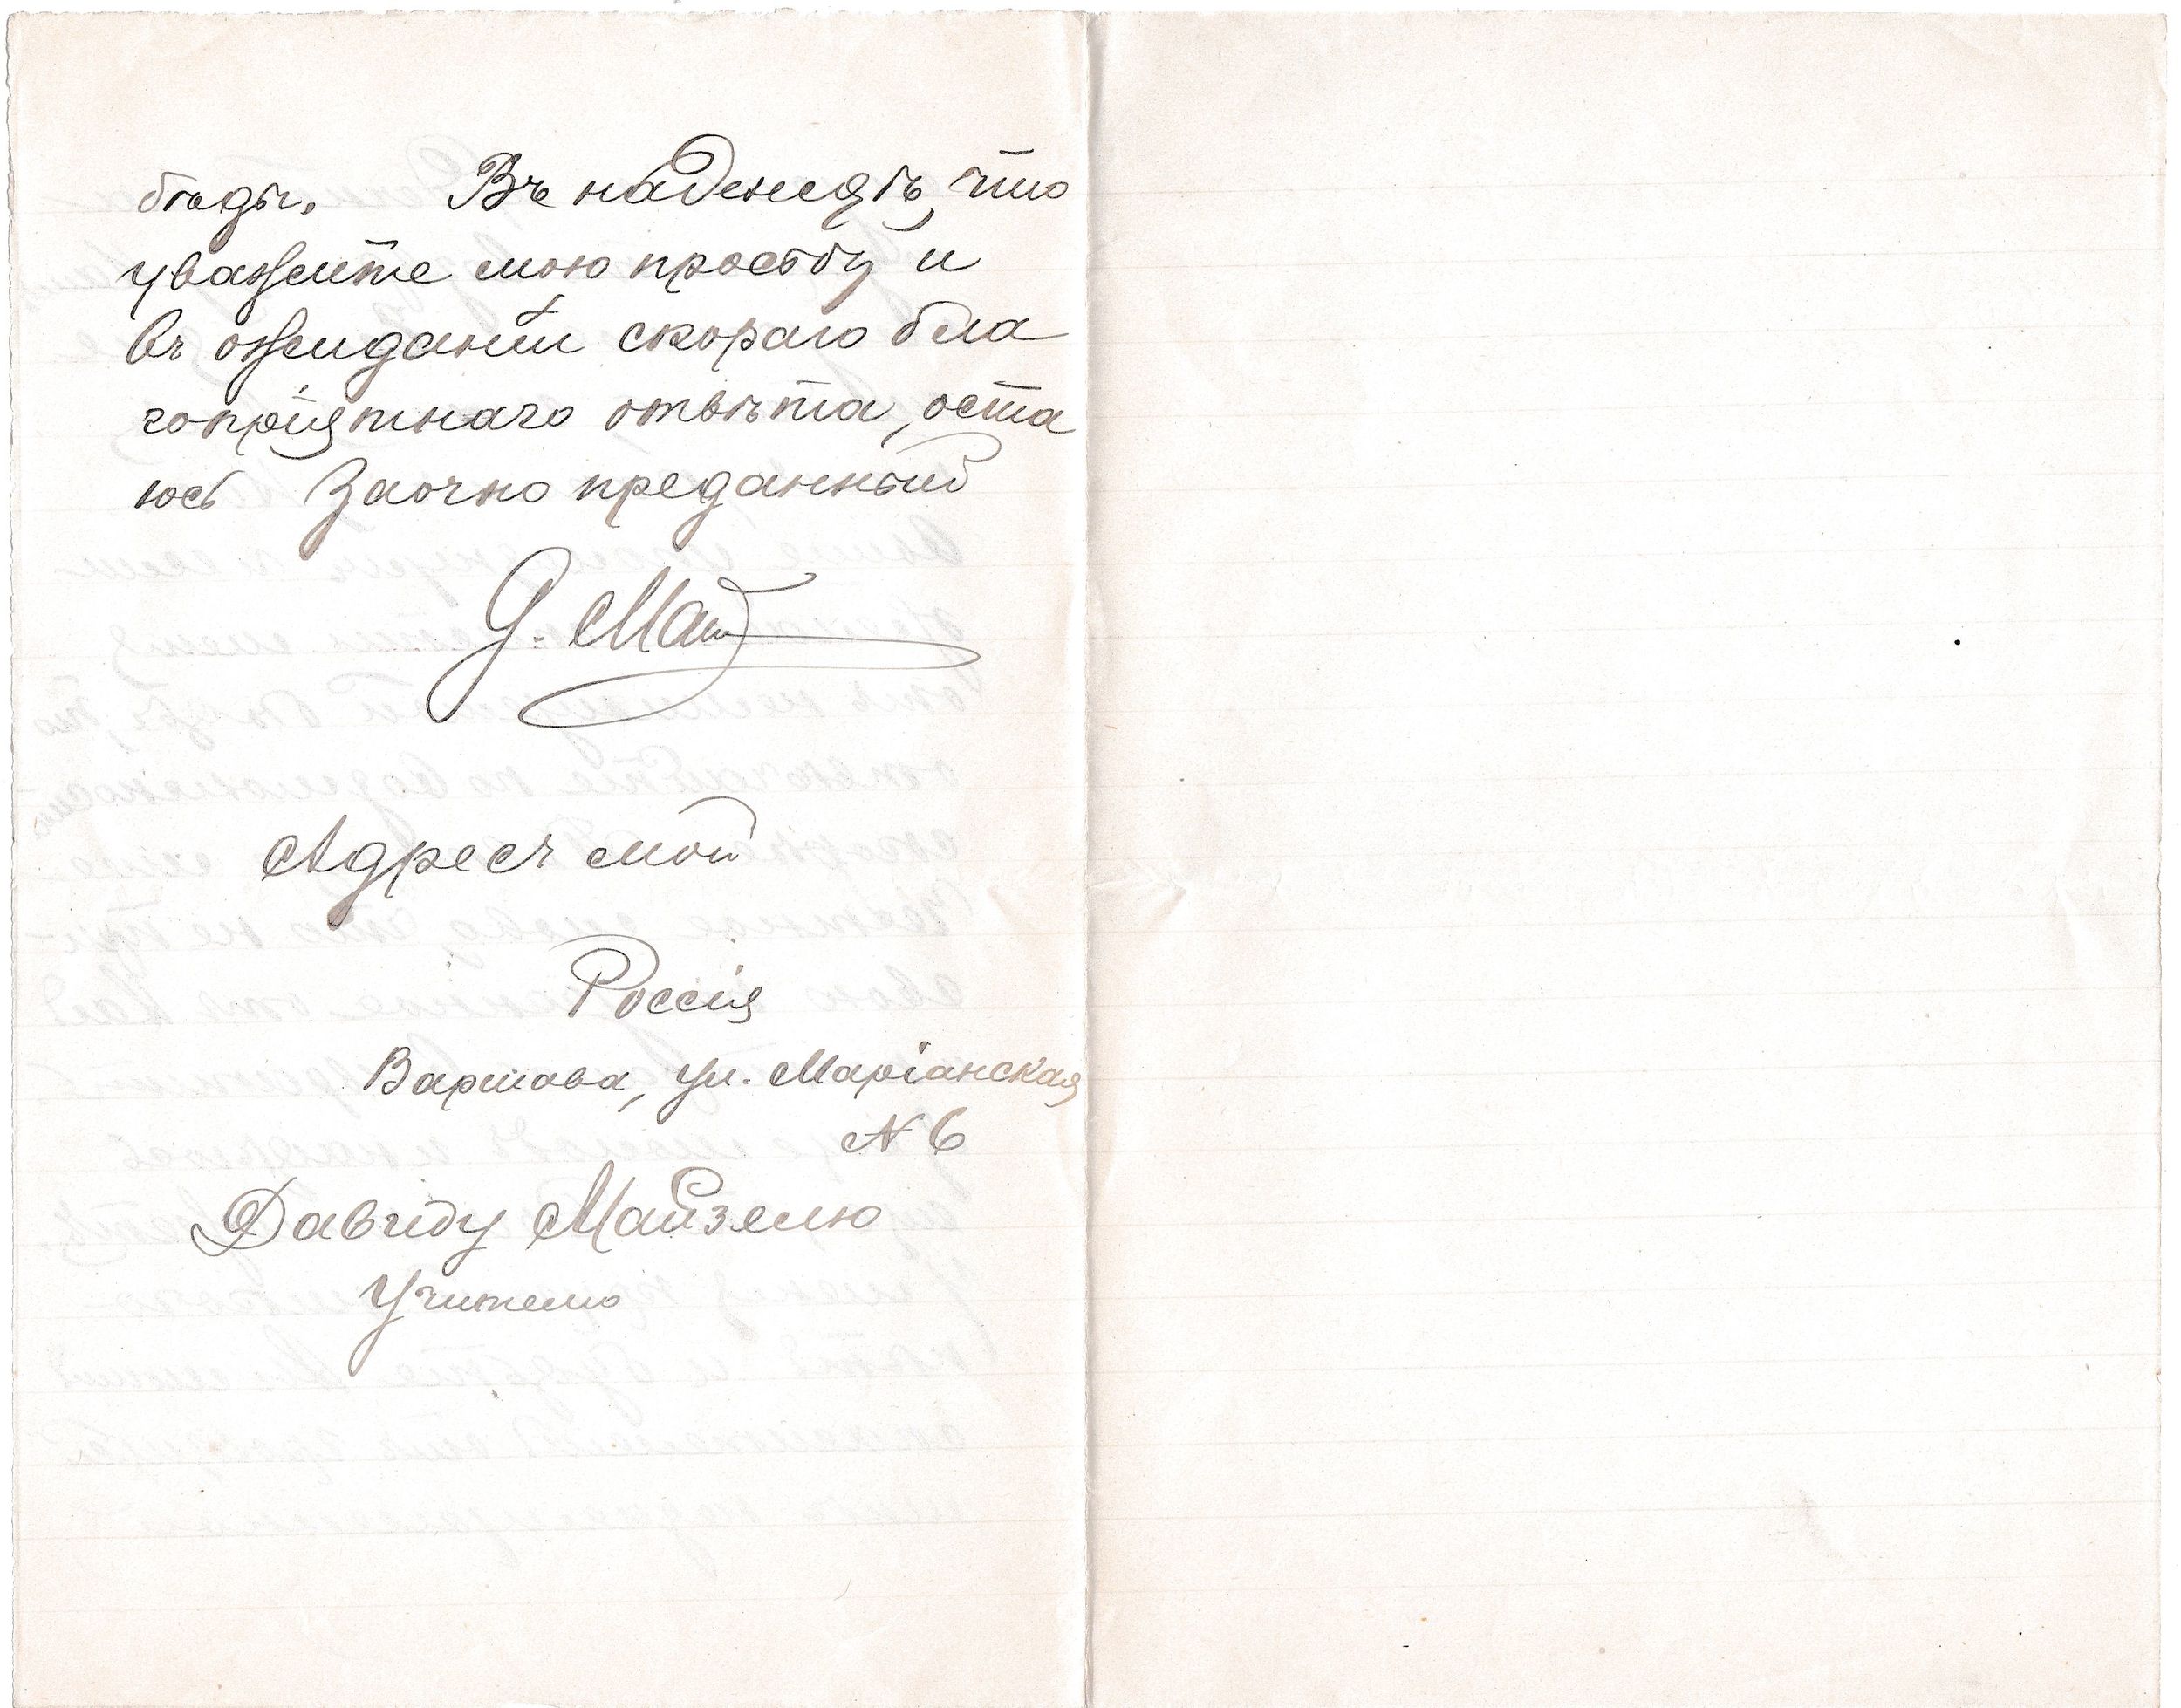 бѣды. Въ надеждѣ, что
уважите мою просьбу и
въ ожиданіи скораго бла
гопріятнаго отвѣта, оста
юсь Заочно преданный
Д. Май
Адресъ мой
Россія
Варшава, ул. Маріанская
N 6
Давиду Майзелю
Учителю